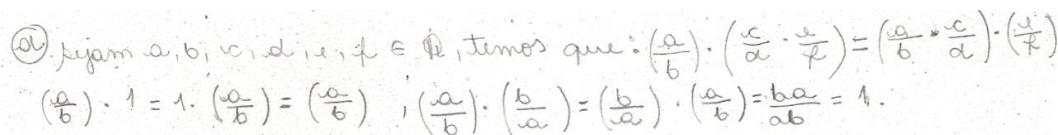 a) sejam a, b, c, d, e, f ∈ R, temos que: (a/b) · (c/d · e/f) = (a/b · c/d) · (e/f)
(a/b) · 1 = 1 · (a/b) = (a/b) , (a/b) · (b/a) = (b/a) · (a/b) = ba/ab = 1.